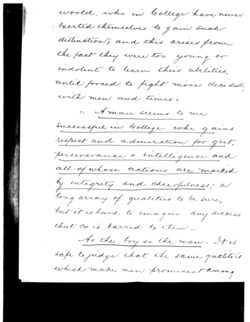 world who in College have never
exerted themselves to gain such
distinction; and this arises from
the fact they were too young or
indolent to learn their abilities,
until forced to fight more decidedly
with men and times.
A man seems to me
successful in College who gains
respect and admiration for grit,
perseverance & intelligence and
all of whose actions are marked
by integrity and cheerfulness: a
long array of qualities to be sure,
but it is hard to imagine any success
that is barred to them.
As the boy so the man. It is
safe to judge that the same qualities
which make men prominent among